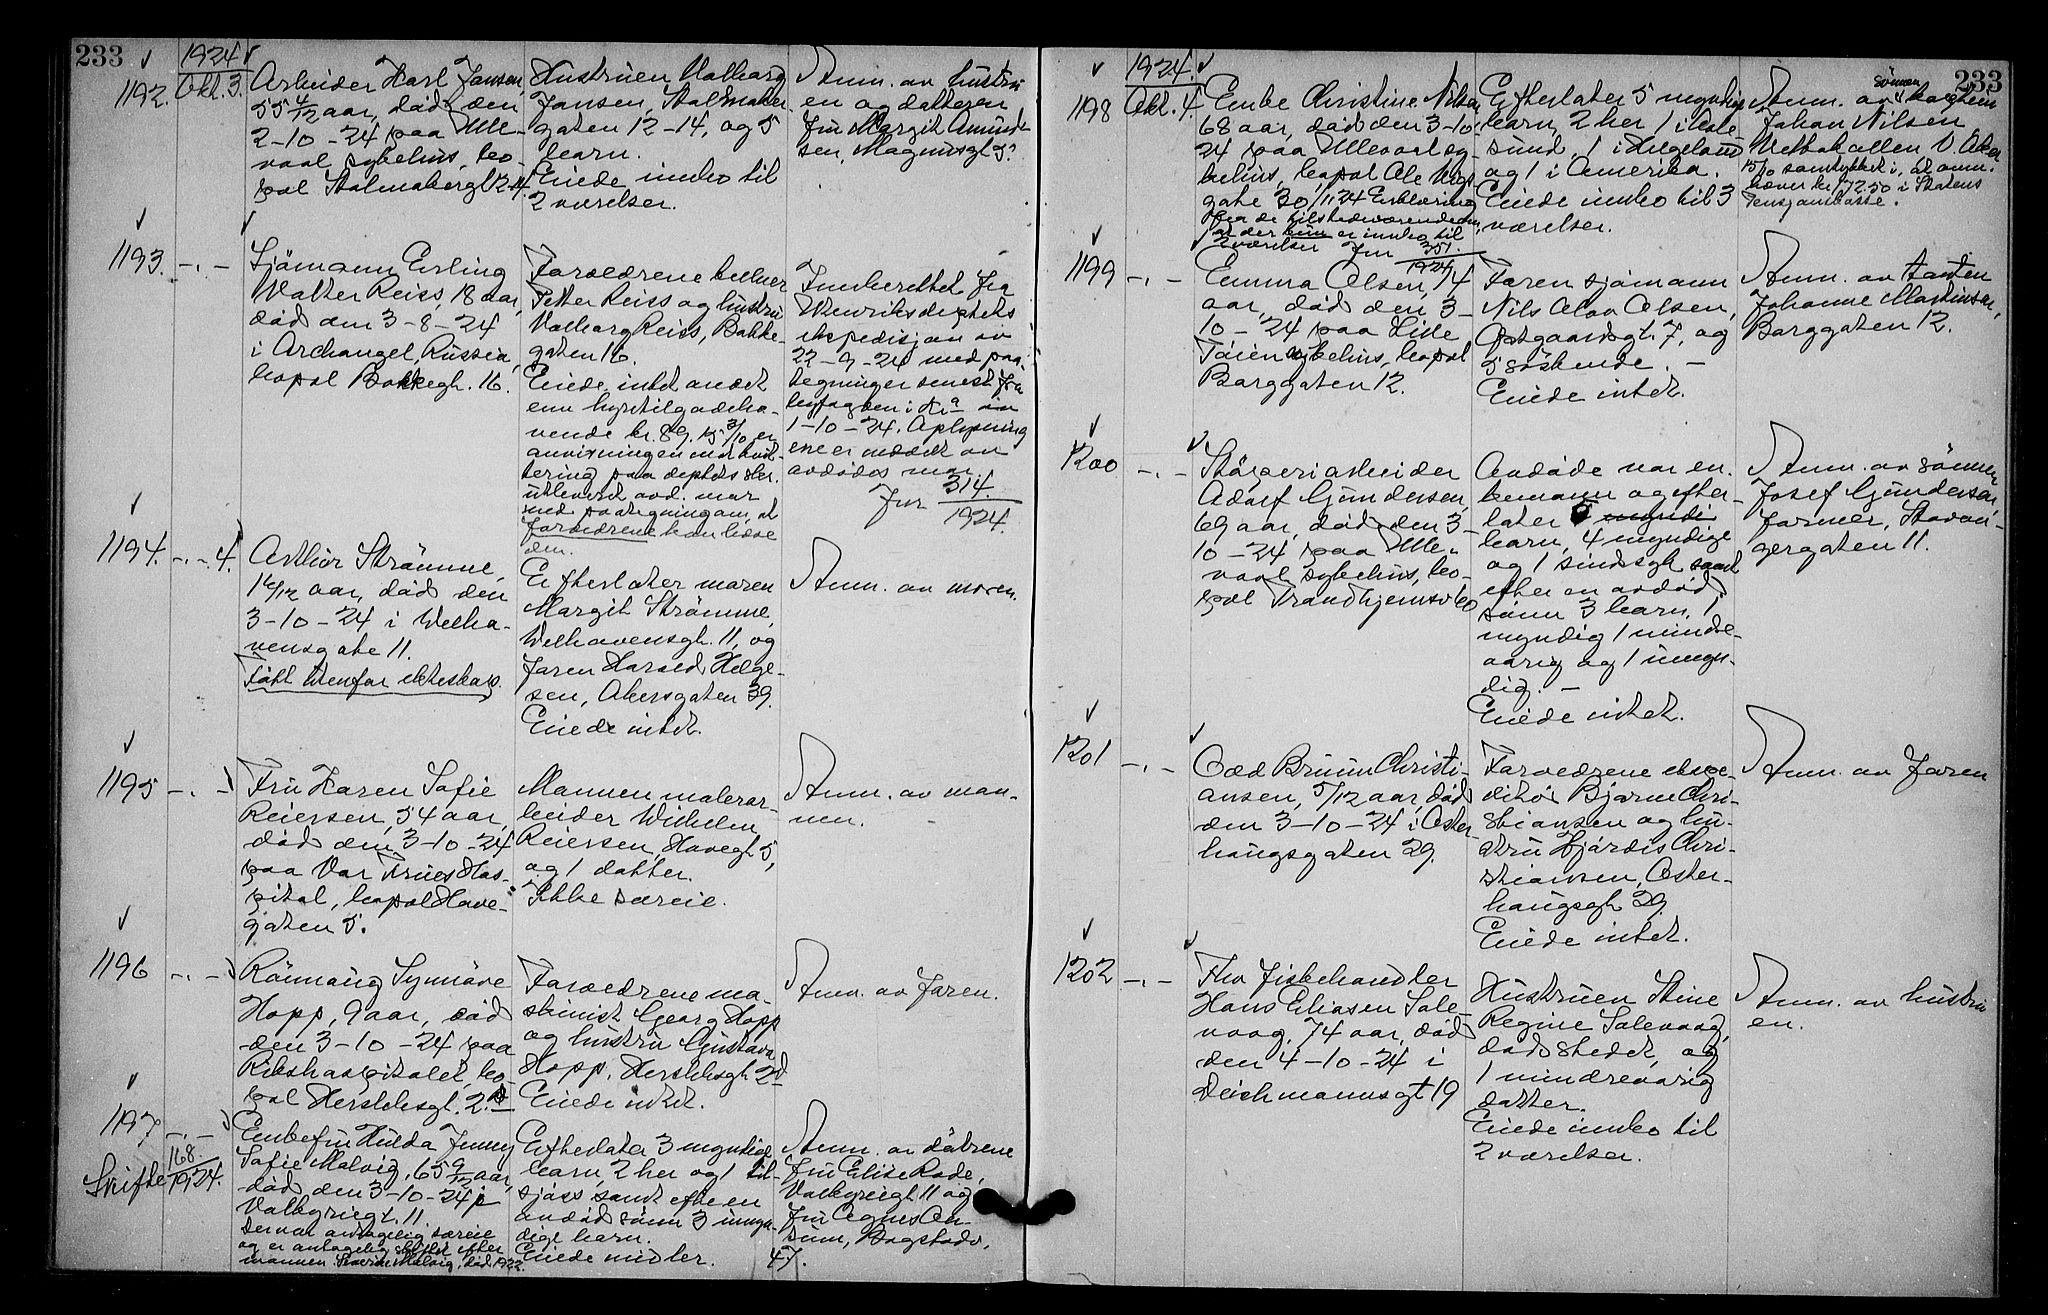 233
1924
1192. Okt. 3.
Arbeider Karl Jansen,
55 4/12 aar, død den
2-10-24 paa Ulle-
vaal sykehus, bo-
pæl Stolmakergt. 12-14.
Hustruen Valborg
Jansen, Stolmaker-
gaten 12-14, og 5
barn.
Eiede innbo til
2 værelser.
Anm. av hustru-
en og datteren
fru Margit Amund-
sen, Magnusgt. 5.
1193. -.-
Sjömann Erling
Walter Reiss, 18 aar,
död den 3-8-24
i Archangel, Russia,
bopæl Bakkegt. 16.
Forældrene kelner
Petter Reiss og hustru
Valborg Reiss, Bakke-
gaten 16.
Eiede intet andet
enn hyretilgodeha-
vende kr. 89.15 3/10 er
anvisningen med kvit-
tering paa deptets skr.
utlevert avd. mor
med paategning om, at
forældrene kan hæve
den.
Innberettet fra
Utenriksdeptets
ekspedisjon av
22-9-24 med paa-
tegninger senest fra
byfogden i Kra av
1-10-24. Oplysning
ene er meddelt av
avdødes mor.
Jnr 314.
1924.
1194. -.- 4.
Arthur Strömme,
14/12 aar, död den
3-10-24 i Welha-
vensgate 11.
Födt utenfor ekteskap.
Efterlater moren
Margit Strömme,
Welhavensgt. 11, og
faren Harald Helge-
sen, Akersgaten 39.
Eiede intet.
Anm. av moren.
1195 -.-
Fru Karen Sofie
Reiersen, 54 aar,
död den 3-10-24
paa Vor Frues Hos-
pital, bopæl Have-
gaten 5.
Mannen malerar-
beider Wilhelm
Reiersen, Havegt 5,
og 1 datter.
Ikke særeie.
Anm. av man-
nen.
1196 -.-
Rönnaug Synnöve
Hopp, 9 aar, död
den 3-10-24 paa
Rikshospitalet, bo-
pæl Herslebsgt. 2 d
Forældrene ma-
skinist Georg Hopp
og hustru Gustava
Hopp, Herslebsgt 2 d
Eiede intet.
Anm. av faren.
1197 -.-
Skifte 168.
1924.
Enkefru Hulda Jenny
Sofie Malvig, 65 9/12 aar,
död den 3-10-24 i
Valkyriegt. 11.
Der var antagelig særeie
og er antagelig skiftet efter
mannen Severin Malvig, död 1922.
Efterlater 3 myndige
barn, 2 her og 1 til-
sjøss samt efter en
avdöd sönn 3 umyn-
dige barn.
Eiede midler.
Anm. av dötrene
fru Elise Rode,
Valkyriegt 11 og
fru Agnes
Bogstadv.
47.
233
1924.
1198 Okt. 4.
Enke Christine Nilsen
68 aar, död den 3-10-
24 paa Ullevaal sy-
kehus, bopæl Ole Vigs
gate 30 1/11 24 Erklæring
fra de tilstedeværende om,
at der kun er innbo til
3 værelser Jnr 351.
1924
Efterlater 5 myndige
barn, 2 her 1 i Aale-
sund, 1 i Helgeland
og 1 i Amerika.
Eiede innbo til 3
værelser.
sönnen
Anm. av
Johan Nilsen
Vetakollen V. Aker
15/10 samtykket i, at anm.
hæver kr. 172.50 i Statens
Pensjonskasse.
1199 -.-
Emma Olsen, 14
aar, död den 3-
10-24 paa Lille
Töien sykehus, bopæl
Borggaten 12.
Faren sjömann
Nils Olav Olsen,
Östgaardsgt. 7, og
5 söskende. -
Eiede intet.
Anm. av tanten
Johanne Martinsen,
Borggaten 12.
1200 -.-
Stöperiarbeider
Adolf Gundersen,
69 aar, död den 3-
10-24 paa Ulle-
vaal sykehus, bo-
pæl Trondhjemsv. 60
Avdöde var en-
kemann og efter-
later 5 myndi
barn, 4 myndige
og 1 sindssyk samt
efter en avdöd
sönn 3 barn, 1
myndig 1 mindre-
aarig og 1 umyn-
dig. -
Eiede intet.
Anm. av sönnen
Josef Gundersen
former, Stavan-
gergaten 11.
1201 -.-
Odd Bruun Christi-
ansen, 5/12 aar, död
den 3-10-24 i Öster-
haugsgaten 29.
Forældrene ekspe-
ditör Bjarne Chri-
stiansen og hu-
stru Hjördis Chri-
stiansen, Öster-
haugsgt. 29.
Eiede intet.
Anm. av faren
1202 -.-
Fhv fiskehandler
Hans Eliasen Sale-
vaag, 74 aar, död
den 4-10-24 i
Deichmannsgt 19
Hustruen Stine
Regine Salevaag,
dödsstedet, og
1 mindreaarig
datter.
Eiede innbo til
2 værelser.
Anm. av hustru
en.